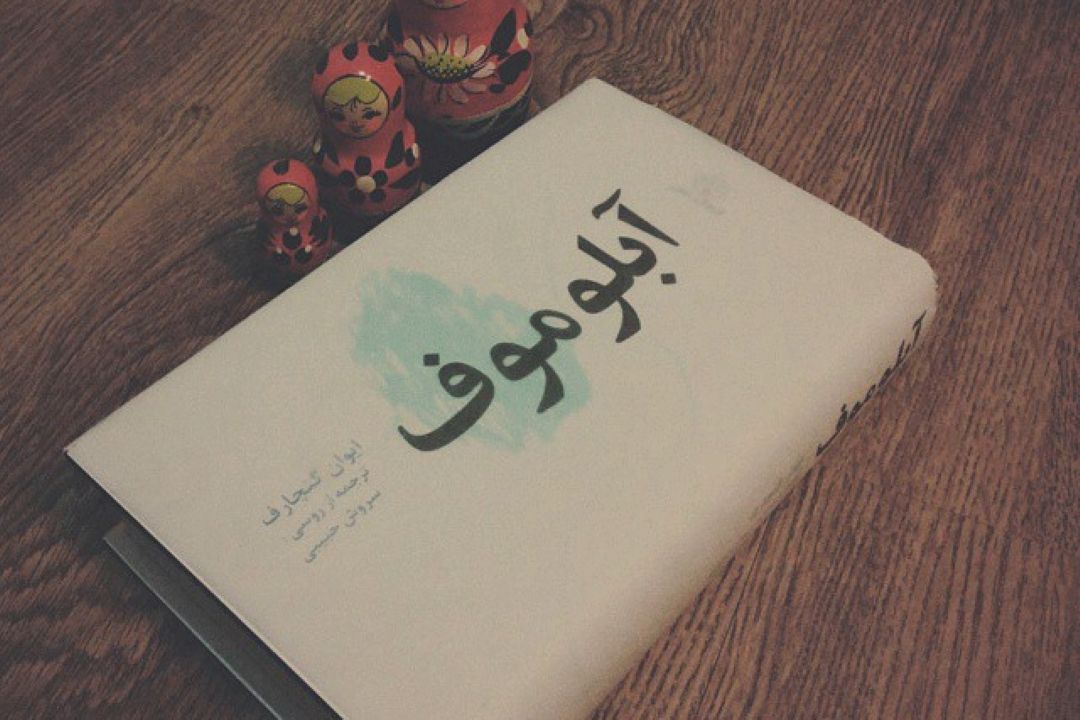 آبلوموف
ایوان گنچارف
ترجمه از روسی
سروش حبیبی
آبلوموف